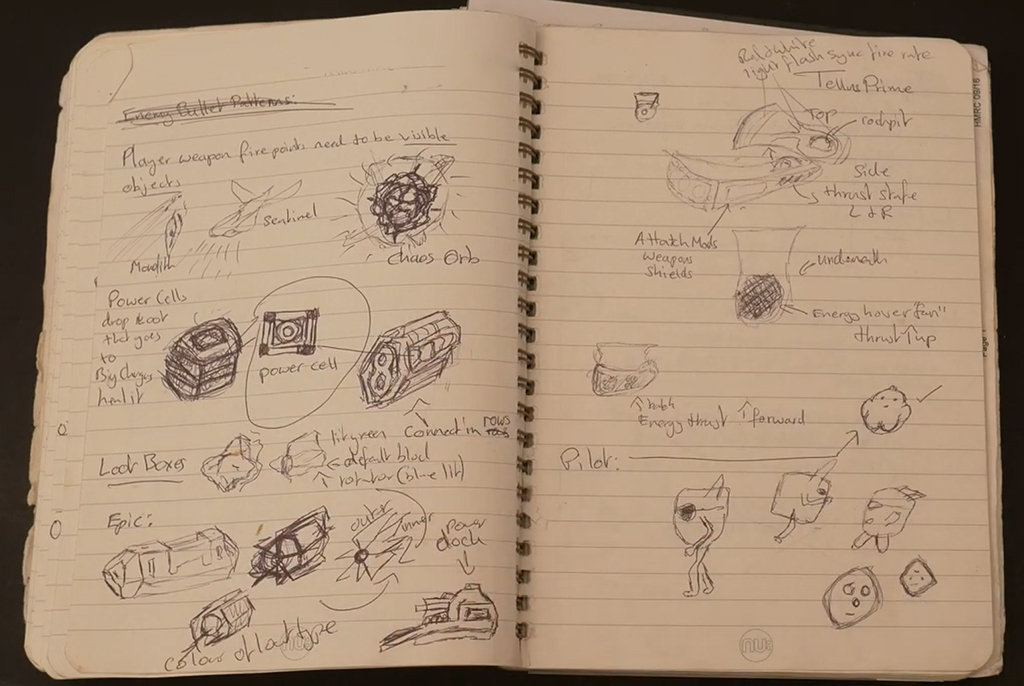 Enemy Bullet Patterns:
Player weapon fire points need to be visible
objects
sentinel
Monolith
Chaos Orb
Power Cells
drop loot
that goes
to
power cell
Connect in rows
Loot Boxes
lit green
default
rotator (blue lit)
Epic:
outer
inner
Power
dock
Colour of loot type
nu
light flash sync fire rate
Tellus Prime
Top
cockpit
Side
thrust
L & R
Attatch Mods
weapons
shields
underneath
Energy hover "fan"
thrust up
Energy thrust forward
Pilot:
nu
HMRC 09/16
Page